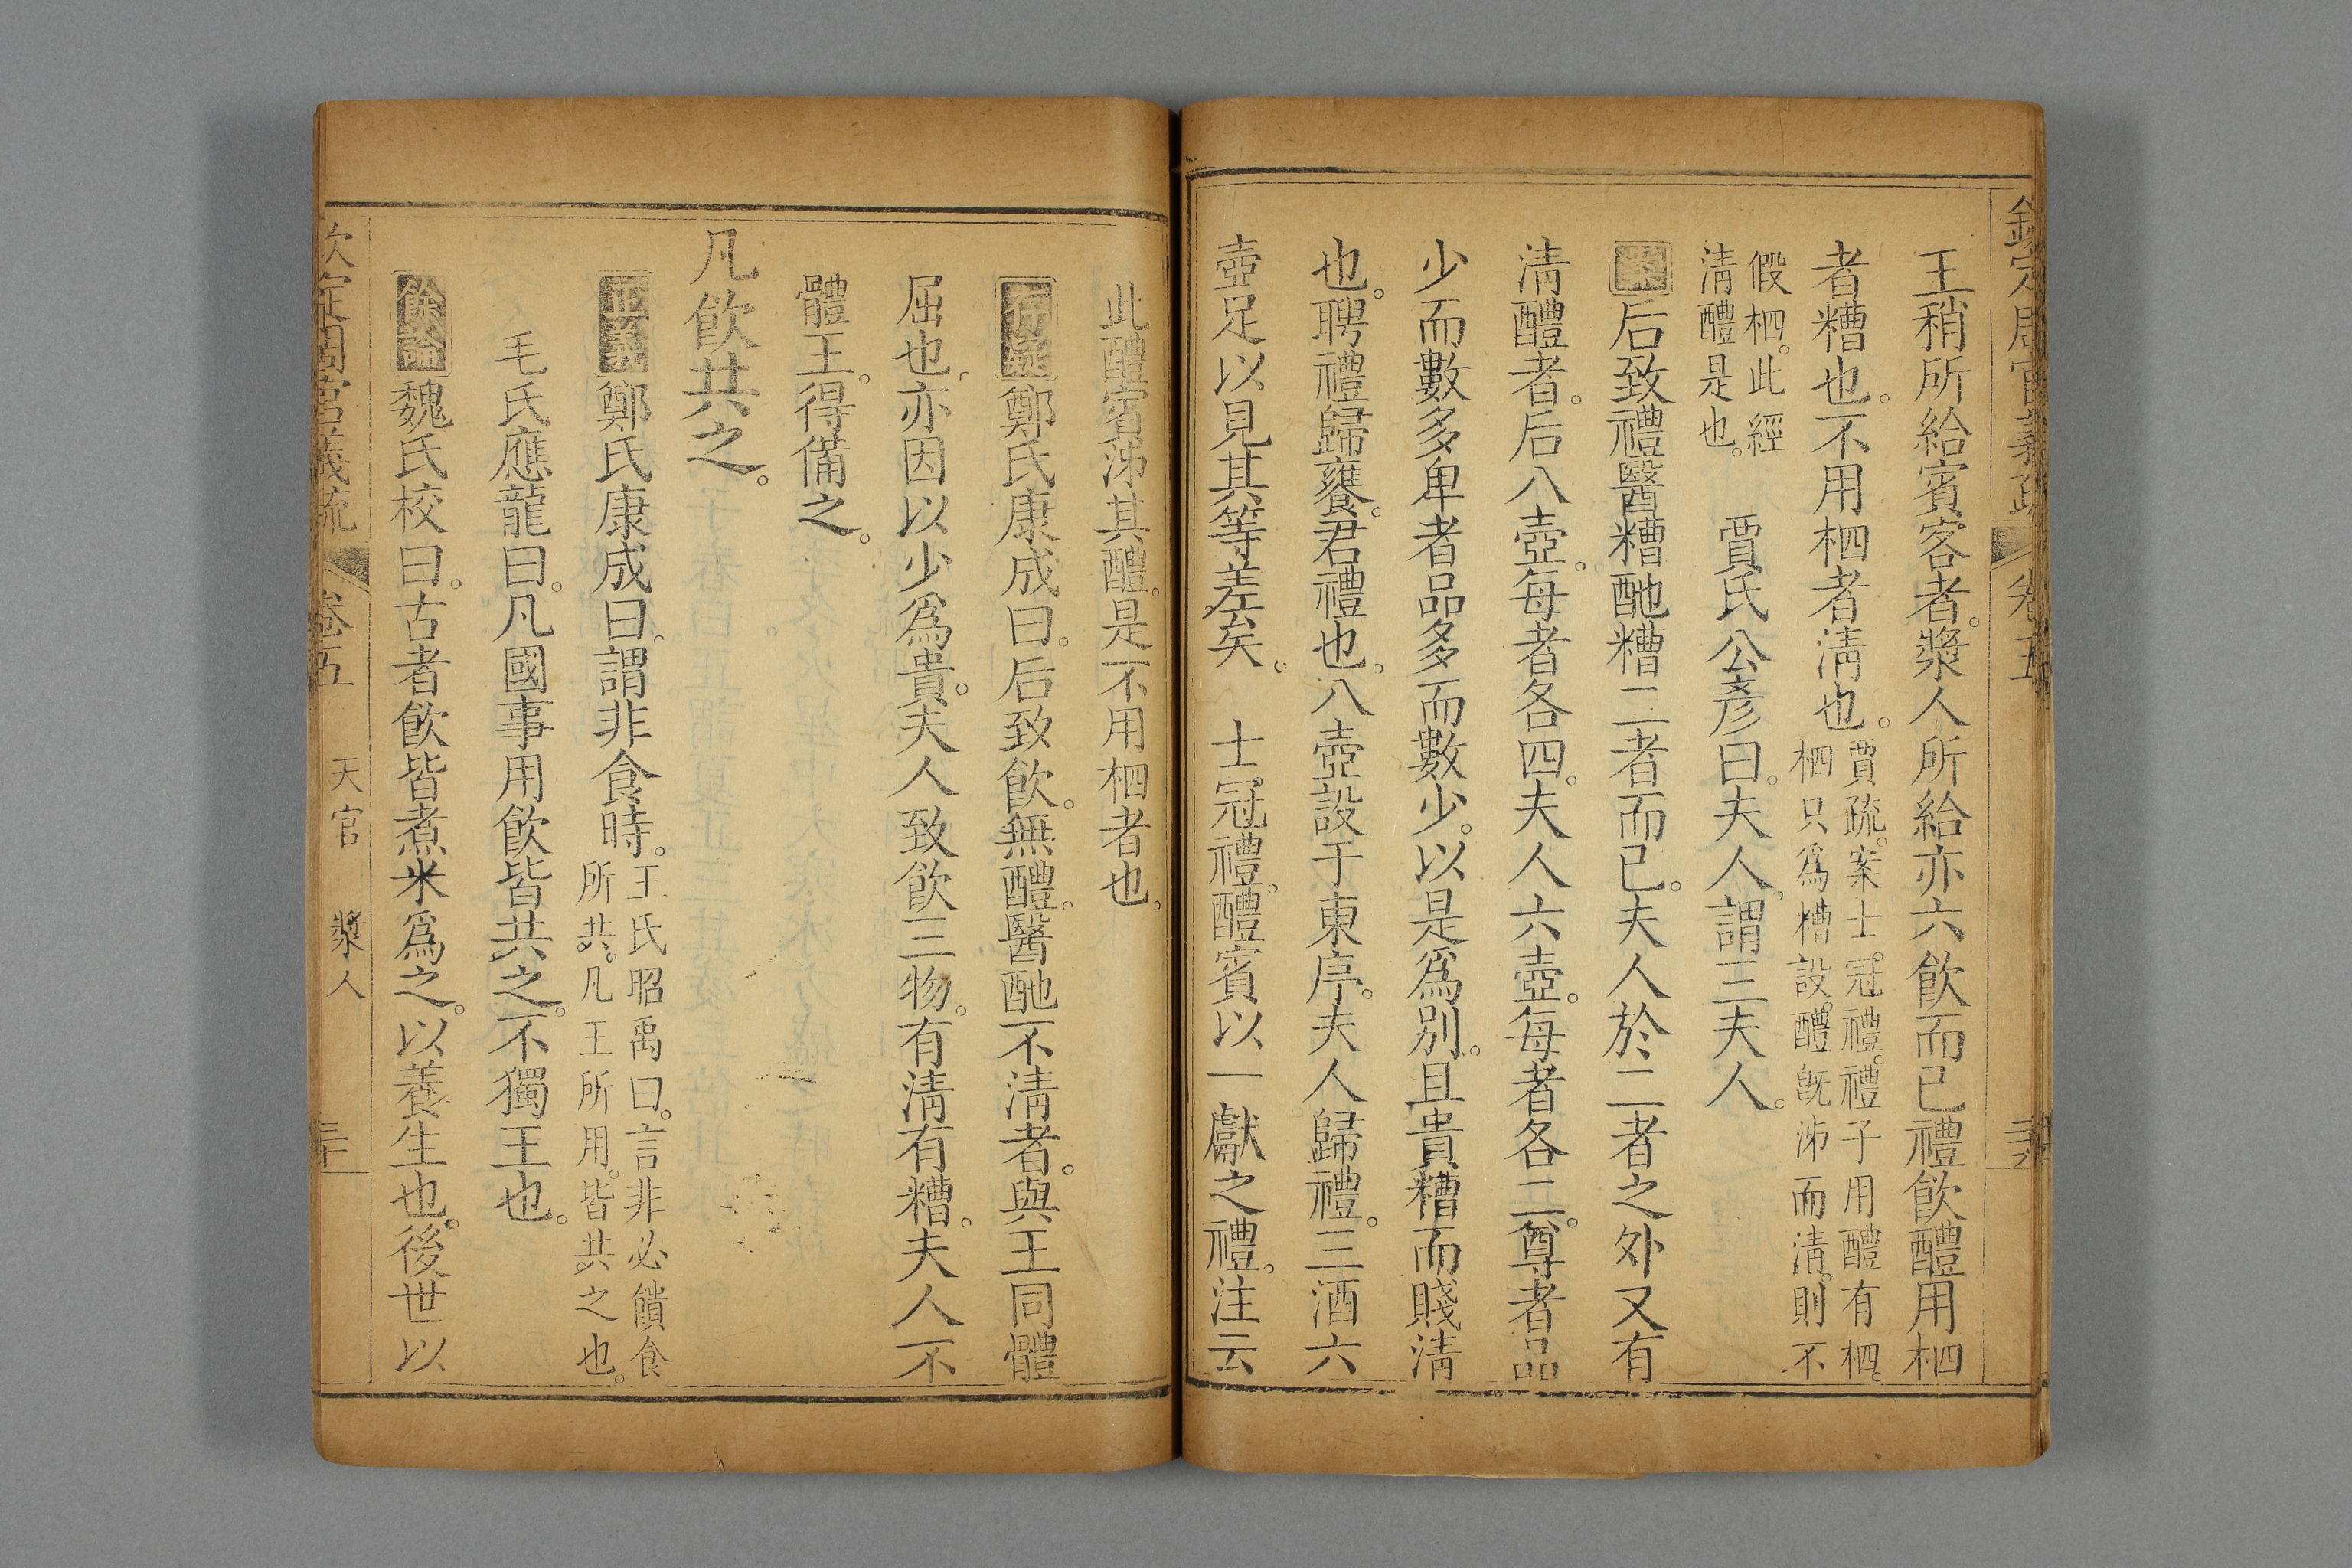 欽定周官義疏 卷五
王稍所給賓客者。漿人所給亦六飲而已禮飲醴用柶
者糟也。不用柶者淸也。賈疏。案士冠禮。禮子用醴有柶。
柶只爲糟設。醴旣泲而淸。則不
假柶。此經
淸醴是也。 賈氏公彥曰。夫人。謂三夫人。
案后致禮醫糟酏糟二者而已。夫人於二者之外又有
淸醴者。后八壺。每者各四。夫人六壺。每者各二。尊者品
少而數多卑者品多而數少。以是爲別。且貴糟而賤淸
也。聘禮歸饔。君禮也。八壺設于東序。夫人歸禮。三酒六
壺足以見其等差矣。 士冠禮。醴賓以一獻之禮。注云
此醴賓泲其醴。是不用柶者也。
存疑鄭氏康成曰。后致飲。無醴。醫酏不淸者。與王同體
屈也。亦因以少爲貴。夫人致飲三物。有淸有糟。夫人不
體王。得備之。
凡飲共之。
正義鄭氏康成曰。謂非食時。王氏昭禹曰。言非必饋食
所共。凡王所用。皆共之也。
毛氏應龍曰。凡國事用飲皆共之。不獨王也。
餘論魏氏校曰。古者飲皆煮米爲之。以養生也。後世以
欽定周官義疏 卷五 天官 漿人 三十